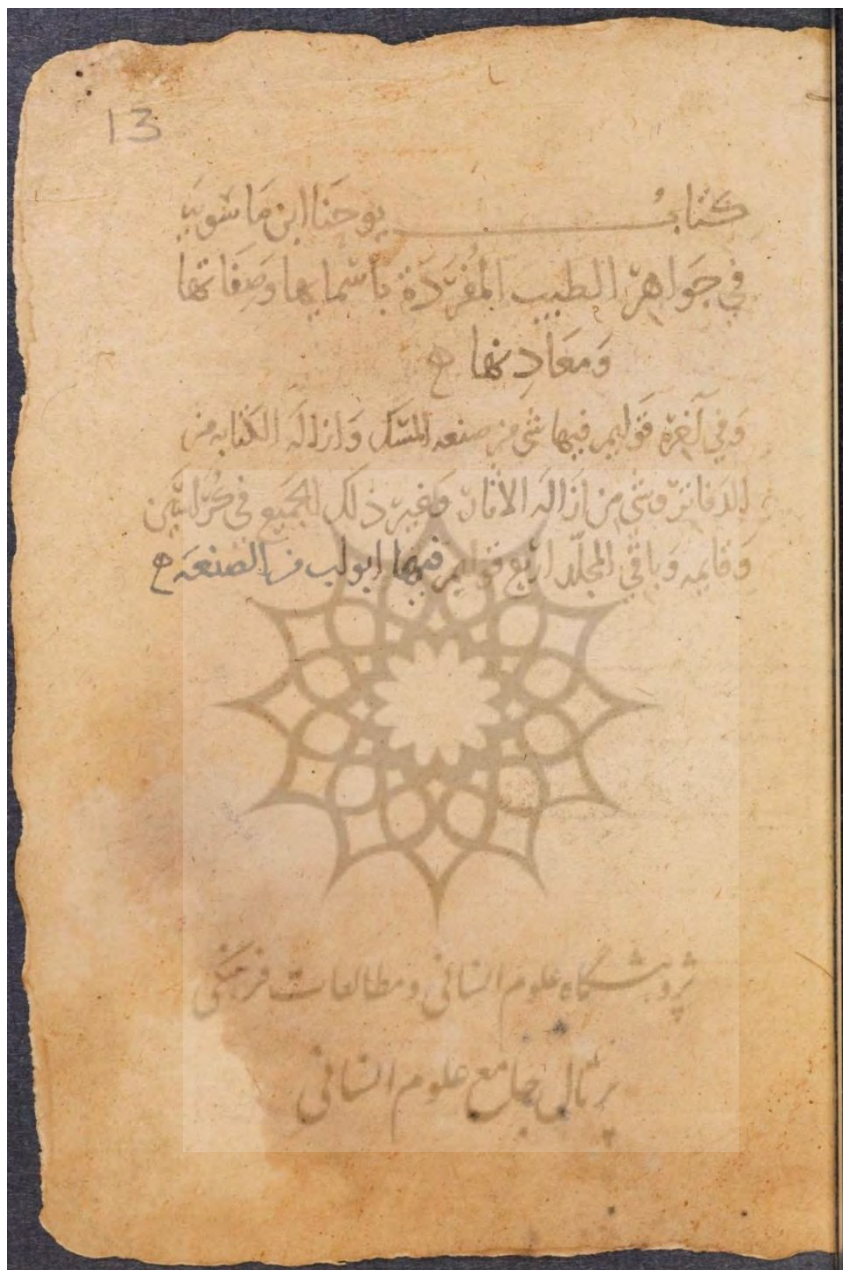 13
كتاب يوحنا ابن ماسويه
في جواهر الطيب المفردة باسمايها وصفاتها
ومعادنها
وفي آخره قوايم فيها شي من صنعه المسك وازاله الكتابه من
الدفاتر وشي من ازاله الاثار وغير ذلك الجميع في كراستين
وقايمه وباقي المجلد اربع قوايم فيها ابواب من الصنعه
پژوهشگاه علوم انسانی و مطالعات فرهنگی
پرتال جامع علوم انسانی